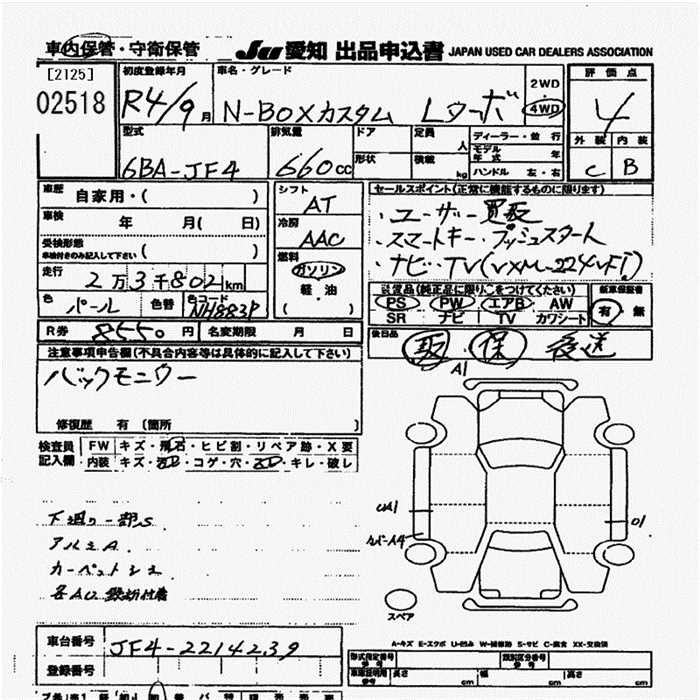 車内保管・守衛保管 JU愛知 出品申込書 JAPAN USED CAR DEALERS ASSOCIATION
[2125]
02518
初度登録年月 R4/9月
車名・グレード N-BOXカスタム Lターボ
2WD・4WD
評価点 4
外装 C 内装 B
型式 6BA-JF4
排気量 660cc
ドア 形状
定員 人
積載 kg
ディーラー・並行
モデル年式 年
ハンドル 左・右
車歴 自家用・( )
車検 年 月( 日)
受検形態 ( )
車検付きのみ記入して下さい
走行 2万3千802km
色 パール 色替 色コード NH883P
シフト AT
冷房 AAC
燃料 ガソリン・軽油・( )
セールスポイント(正常に機能するものに限ります)
・ユーザー買取
・スマートキー・プッシュスタート
・ナビ・TV(VXM-224VFi)
装備品(純正品に限り○をつけてください)
PS PW エアB AW
SR ナビ TV カワシート
新車保証書 有・無
R券 8550円 名変期限 月 日
後日品 取・保 後送
注意事項申告欄(不具合内容等は具体的に記入して下さい)
バックモニター
修復歴 有 [箇所 ]
検査員記入欄
FW キズ・飛石・ヒビ割・リペア跡・X要
内装 キズ・汚レ・コゲ・穴・
・キレ・破レ
下廻り一部S
アルミA
カーペットシミ
A1
UA1
カバーA4
01
スペア
A-キズ E-エクボ U-凹み W-補修跡 S-サビ C-腐食 XX-交換済
車台番号 JF4-2214239
登録番号
型式指定番号 参考
類別区分番号 参考
車庫証明用参考 長さ cm 幅 cm 高さ cm